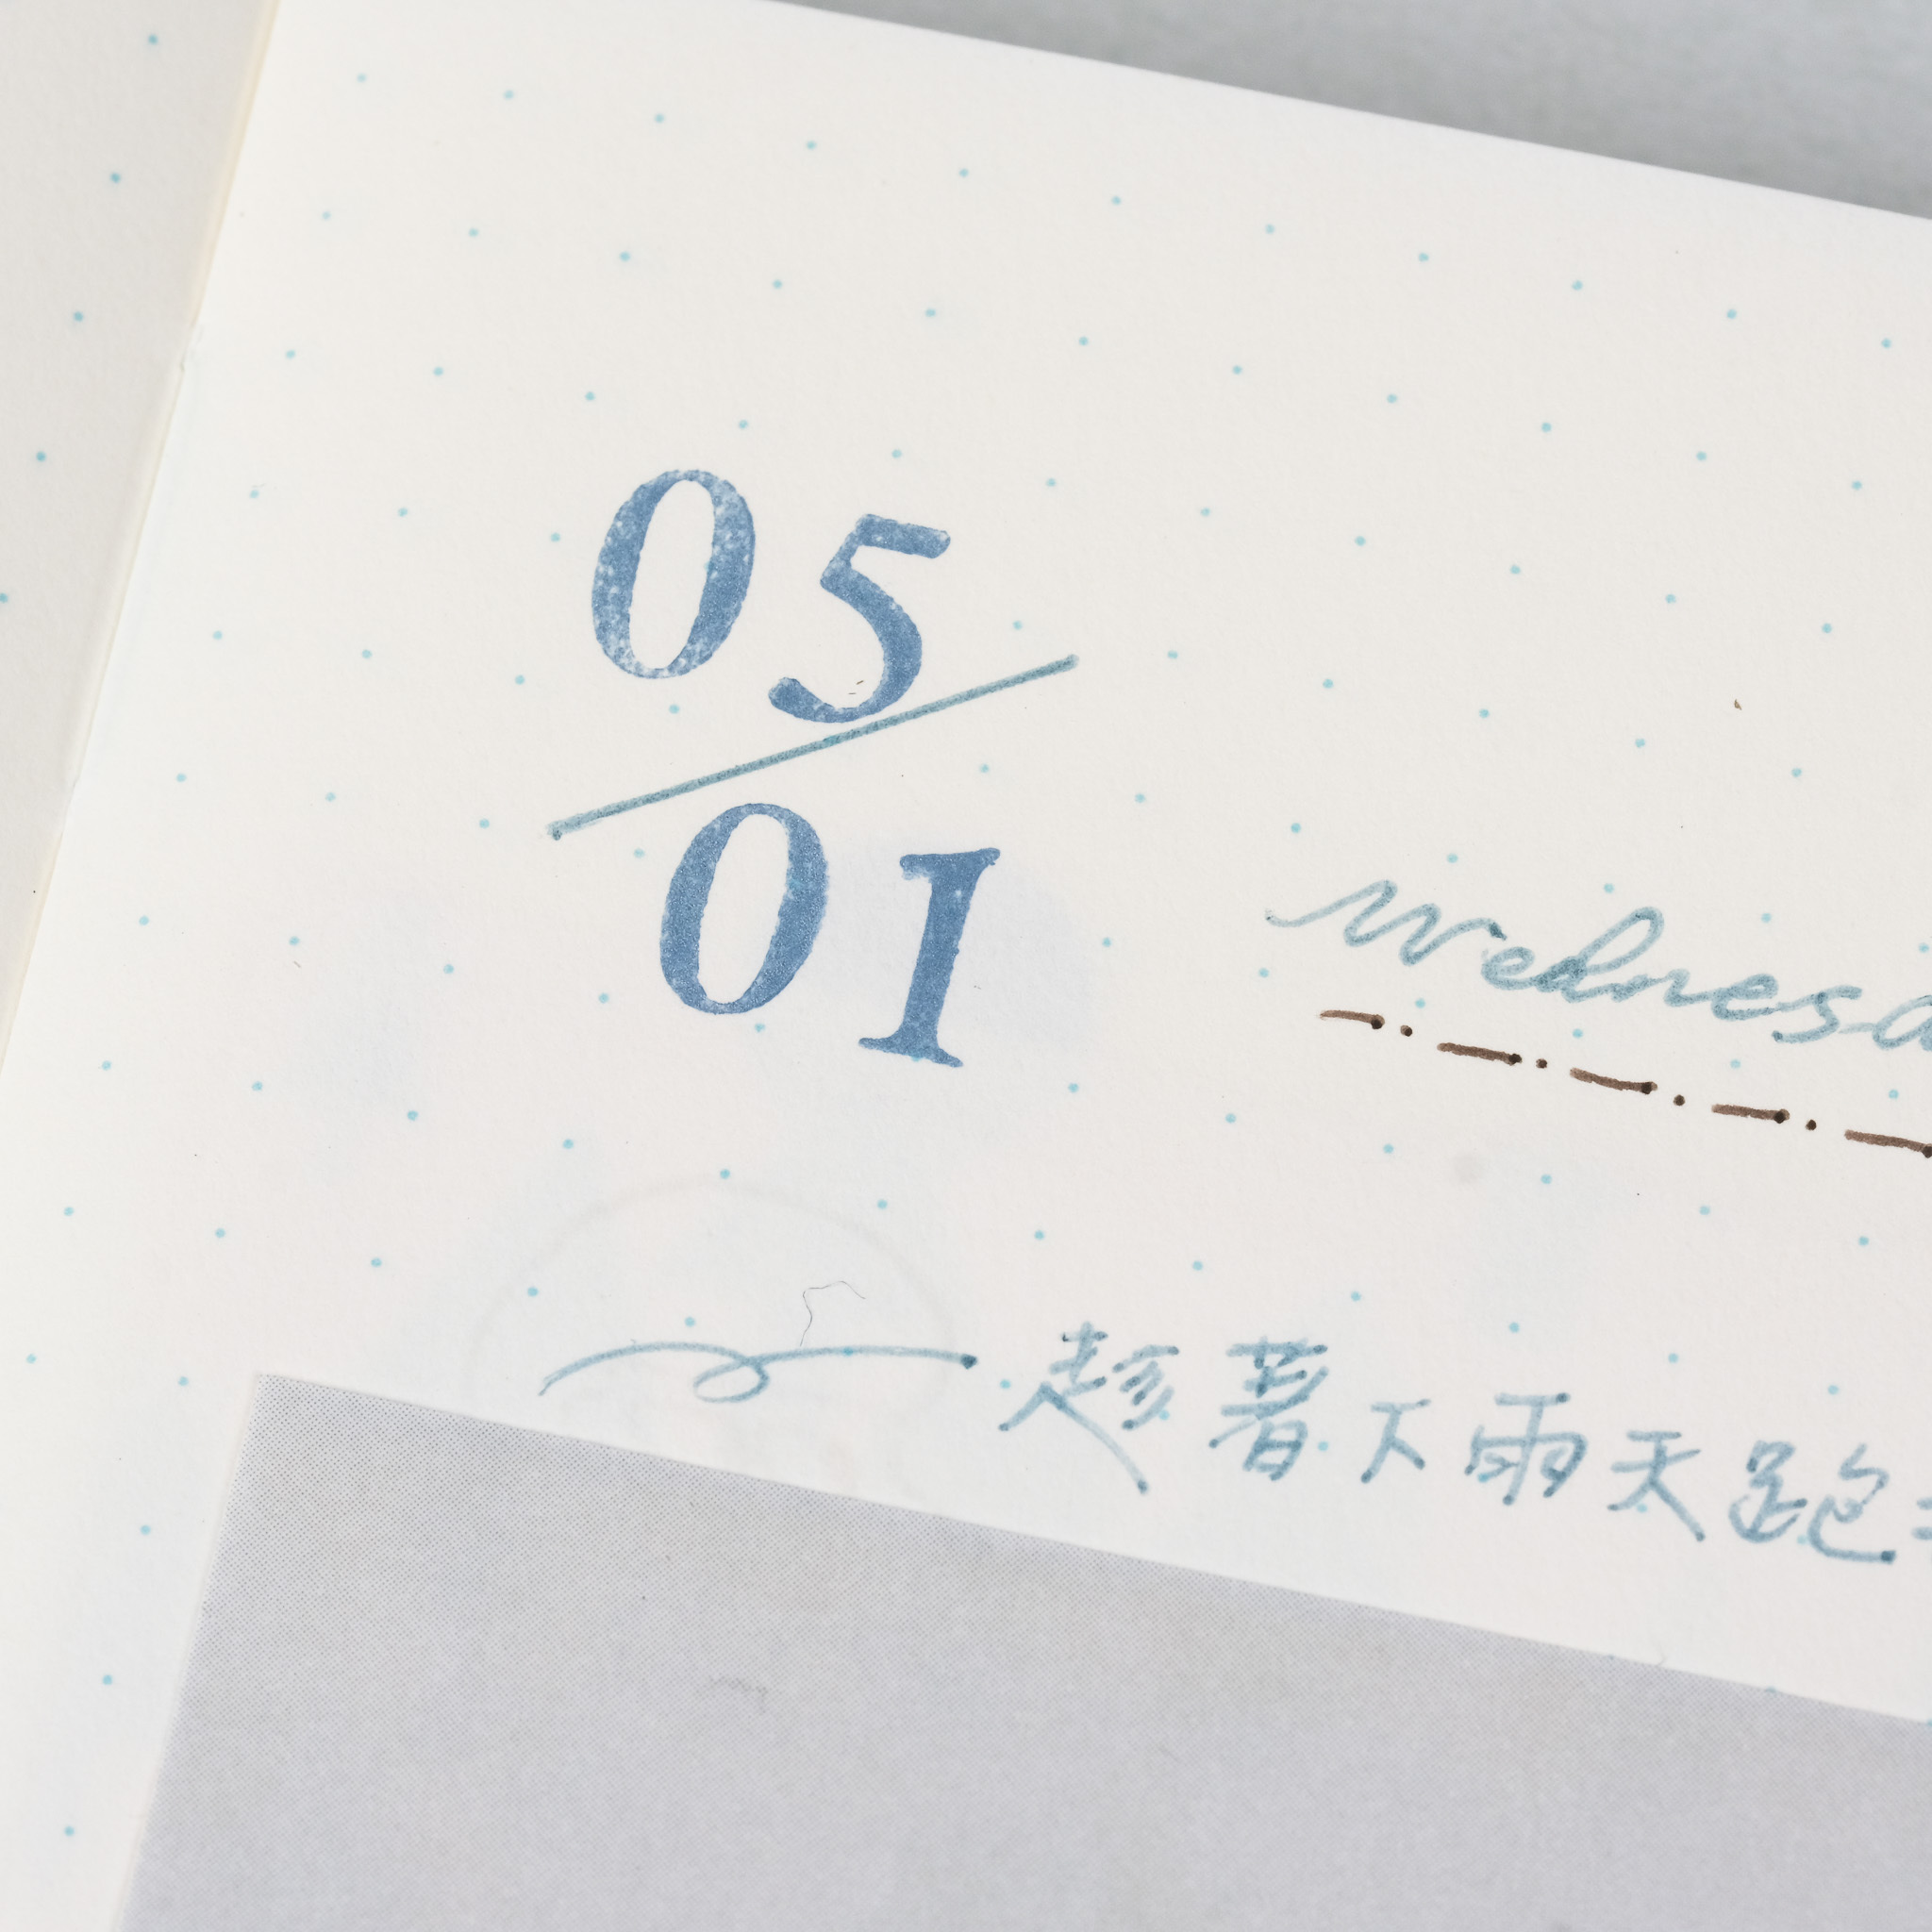 05
01
wednesd
趁著下雨天跑